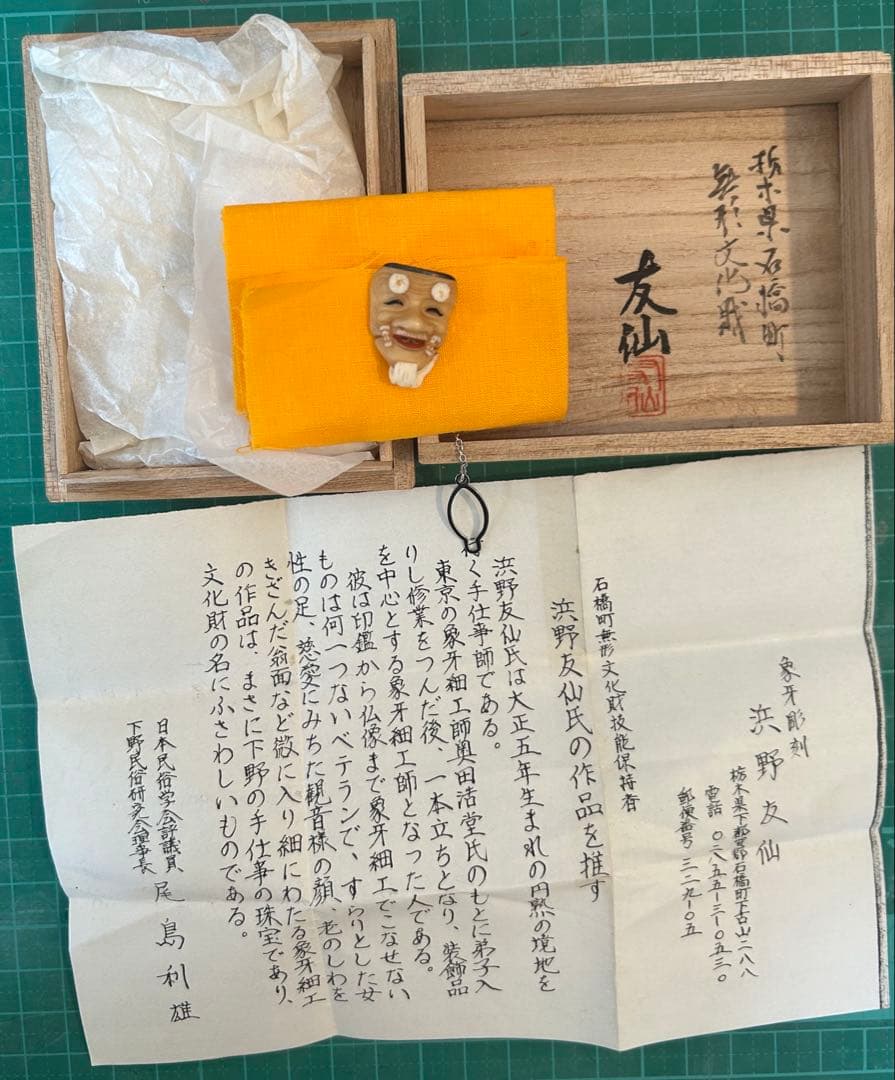 栃木県石橋町、
無形文化財
友仙
象牙彫刻
浜野友仙
栃木県下都賀郡石橋町下古山二八八
電話 〇二八五五―三―〇五三〇
郵便番号 三二九―〇五
石橋町無形文化財技能保持者
浜野友仙氏の作品を推す
浜野友仙氏は大正五年生まれの円熟の境地を
く手仕事師である。
東京の象牙細工師奥田浩堂氏のもとに弟子入
りし修業をつんだ後、一本立ちとなり、装飾品
を中心とする象牙細工師となった人である。
彼は印鑑から仏像まで象牙細工でこなせない
ものは何一つないベテランで、すらりとした女
性の足、慈愛にみちた観音様の顔、老のしわを
きざんだ翁面など微に入り細にわたる象牙細工
の作品は、まさに下野の手仕事の珠宝であり、
文化財の名にふさわしいものである。
日本民俗学会評議員
下野民俗研究会理事長
尾島利雄